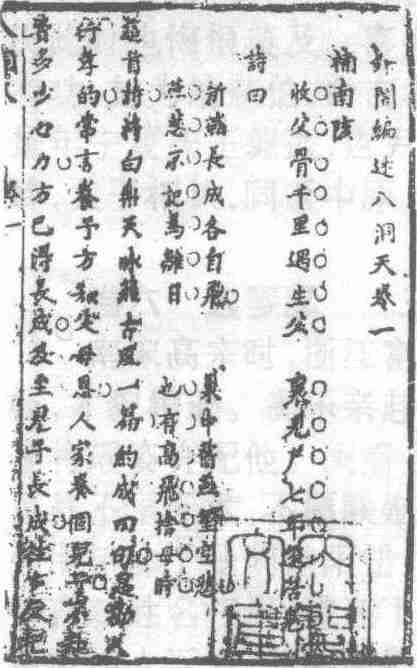 編述八洞天卷一
補南陔
收父骨千里遇生父　裹兒尸七年逢活
詩曰
新燕長成各自飛　巢中舊燕望空悲
燕悲不記為雛日　也有高飛捨母時
這首詩將白樂天咏燕古風一篇約成四句是勸人
行孝的常言養子方知父母恩人家養個兒子
費多少心力方巴得長成及至兒子長成往往反把